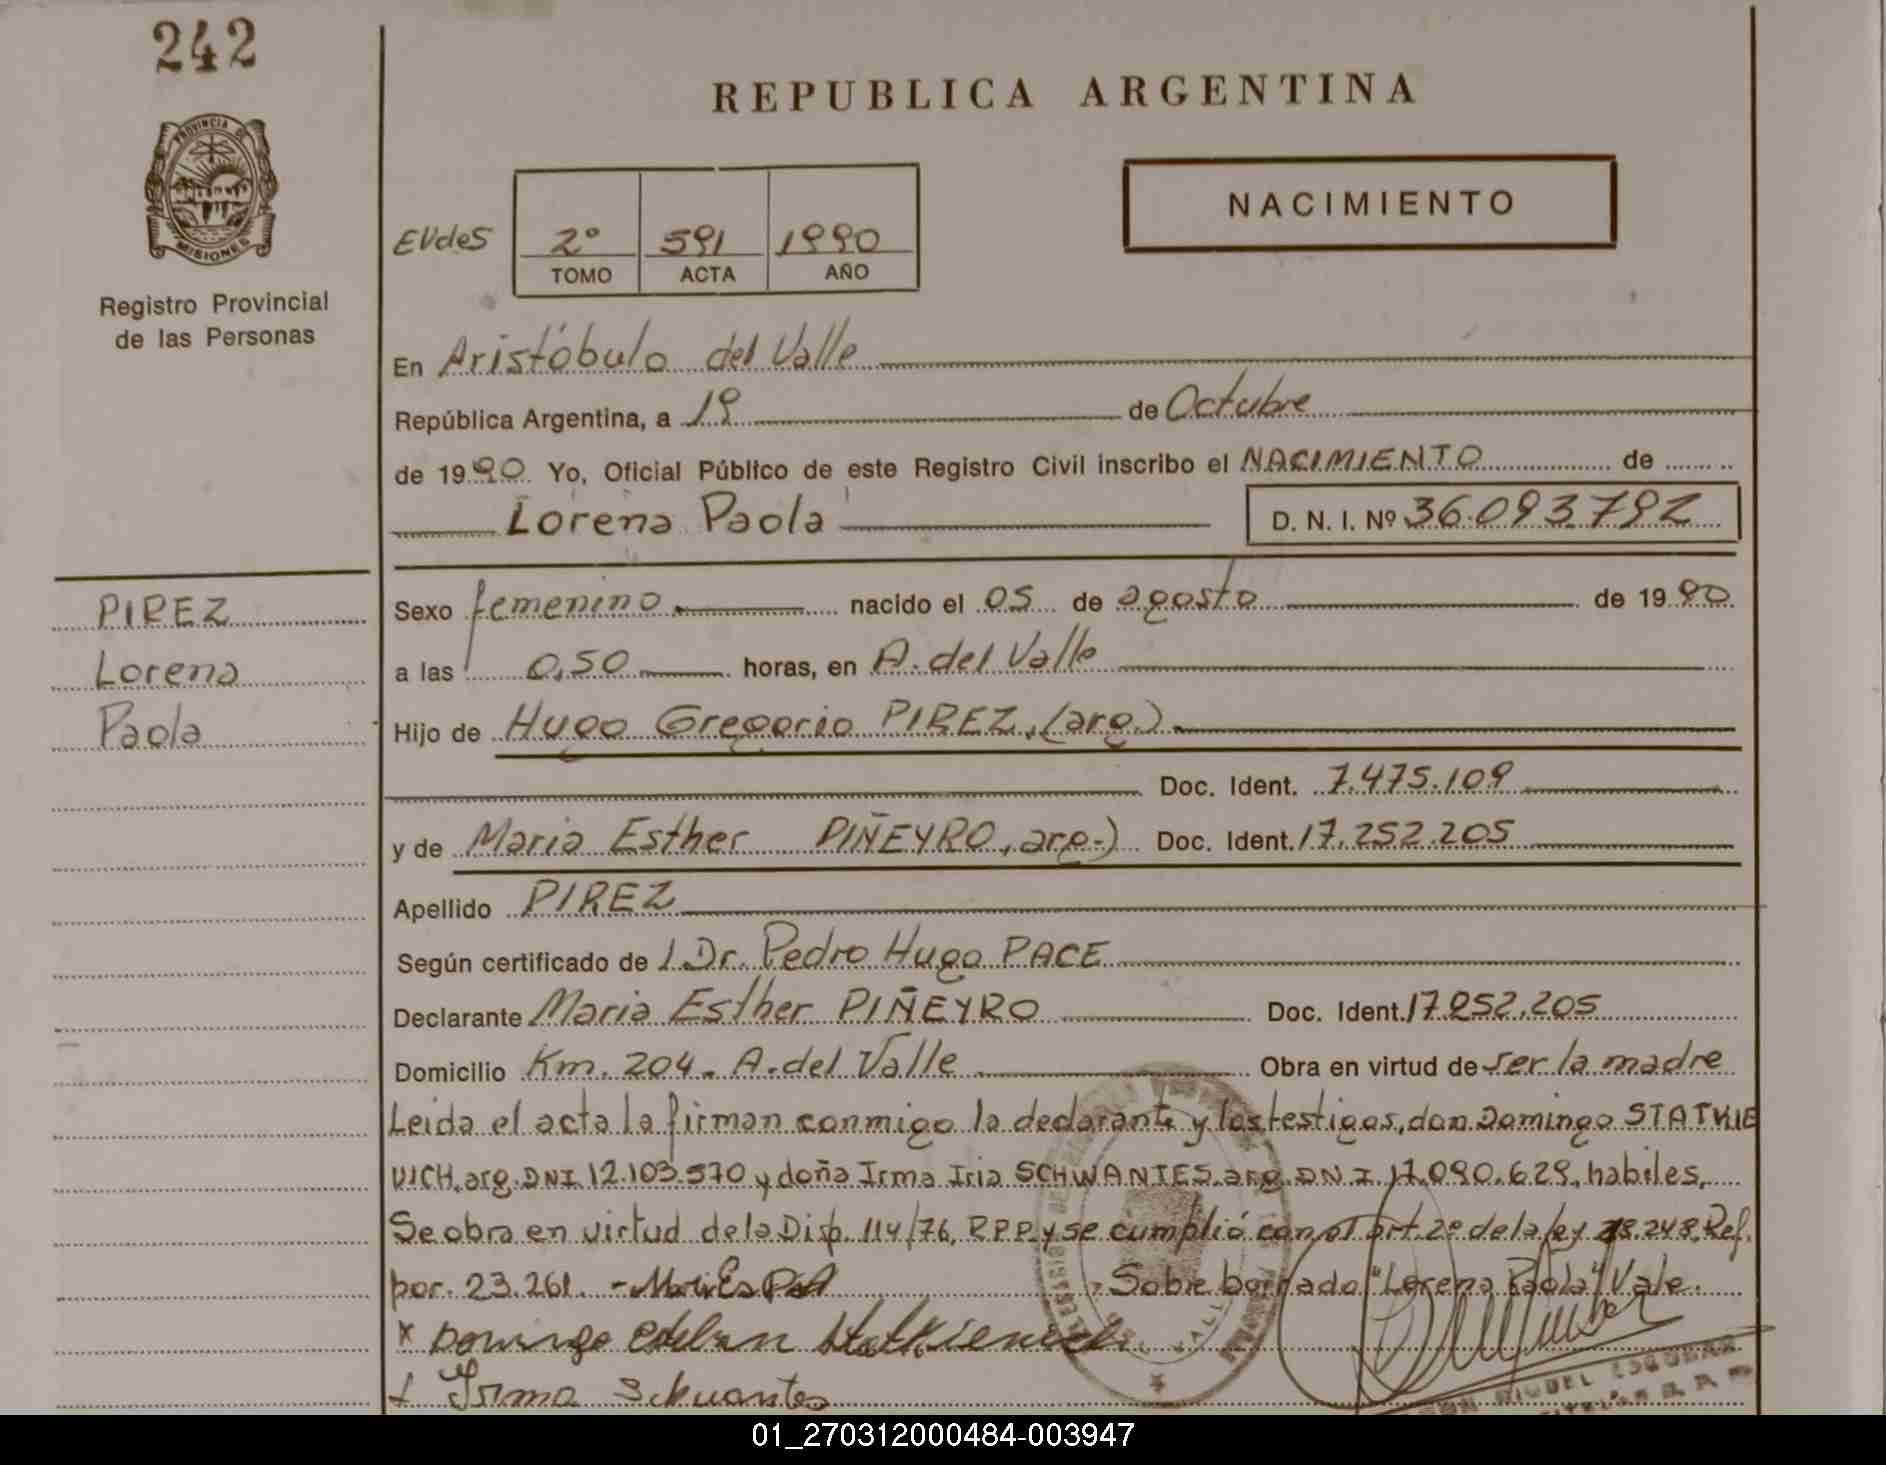 242
PROVINCIA DE
MISIONES
Registro Provincial
de las Personas
PIREZ
Lorena
Paola
REPUBLICA ARGENTINA
NACIMIENTO
EVdeS 2º 591 1990
TOMO ACTA AÑO
En Aristóbulo del Valle
República Argentina, a 19 de Octubre
de 1990 Yo, Oficial Público de este Registro Civil inscribo el NACIMIENTO de
Lorena Paola D. N. I. Nº 36.093792
Sexo femenino nacido el 05 de agosto de 1990
a las 0,50 horas, en A. del Valle
Hijo de Hugo Gregorio PIREZ, (arg.)
Doc. Ident. 7.475.109
y de Maria Esther PIÑEYRO, arg.) Doc. Ident. 17.252.205
Apellido PIREZ
Según certificado de l Dr. Pedro Hugo PACE
Declarante Maria Esther PIÑEYRO Doc. Ident. 17.252.205
Domicilio Km. 204. A. del Valle Obra en virtud de ser la madre
Leida el acta la firman conmigo la declarante y los testigos, don Domingo STATKIE
VICH, arg. DNI 12.103.570 y doña Irma Iria SCHWANTES, arg. DN.I. 17.090.629, habiles,
Se obra en virtud de la Disp. 114/76, RPP y se cumplió con el art. 2º de la ley 18.248, Ref.
por. 23.261. - Sobre borrado "Lorena Paola" Vale.
x Domingo
Irma Schwantes
MIGUEL ESCOBAR
01_270312000484-003947